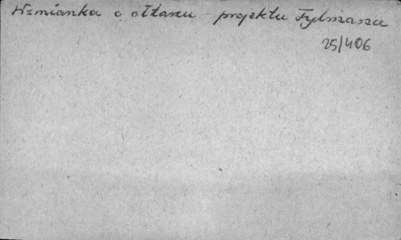 Wzmianka o ołtarzu projektu Tylmana
25/406